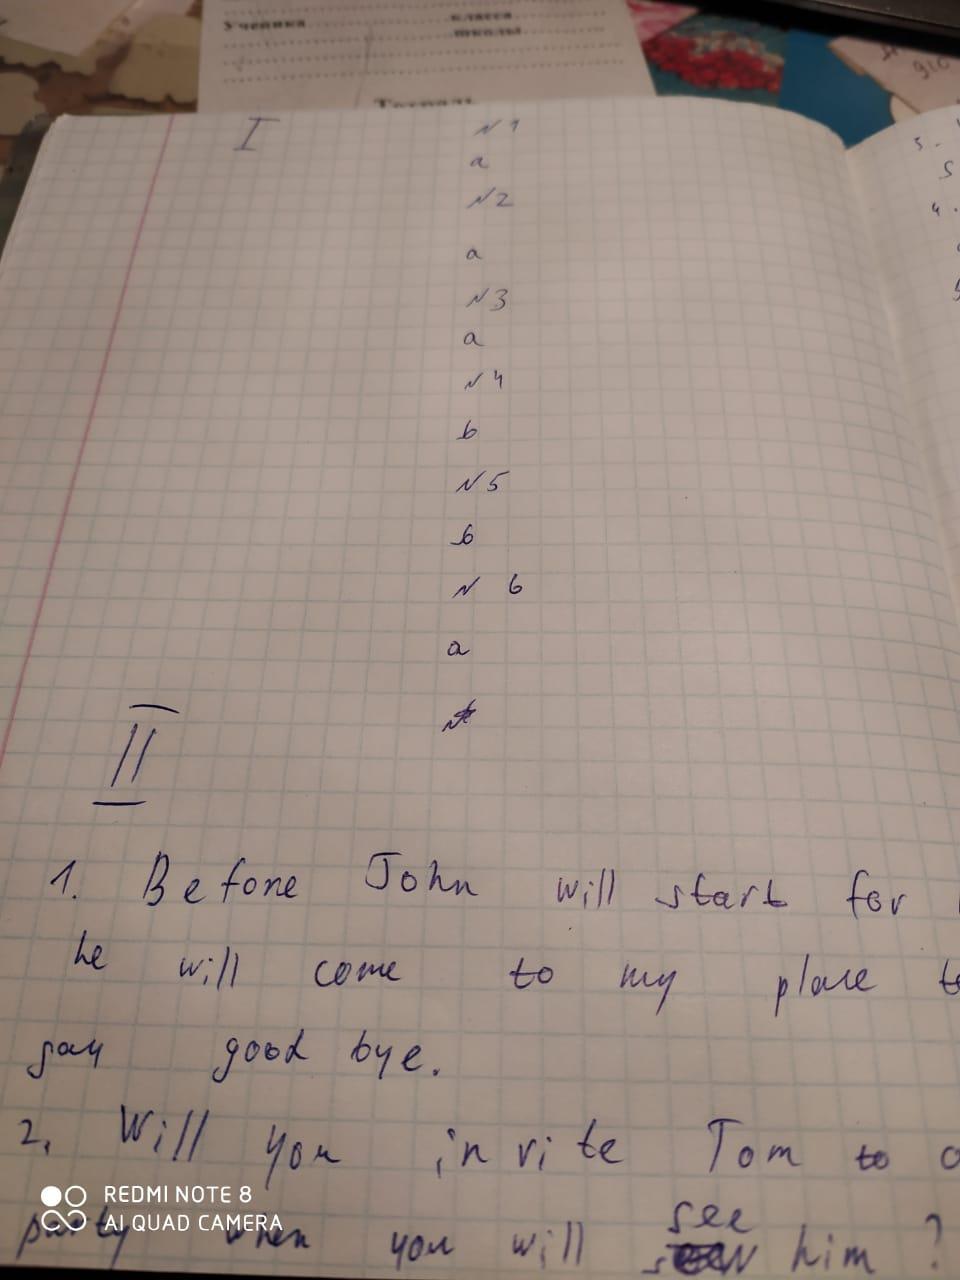 Ученика класса
школы
Тетрадь
I
№1
a
№2
a
№3
a
№4
b
№5
b
№ 6
a
II
1. Before John will start for
he will come to my place to
say good bye.
2. Will you invite Tom to
party when you will see him ?
5.
4.
REDMI NOTE 8
AI QUAD CAMERA